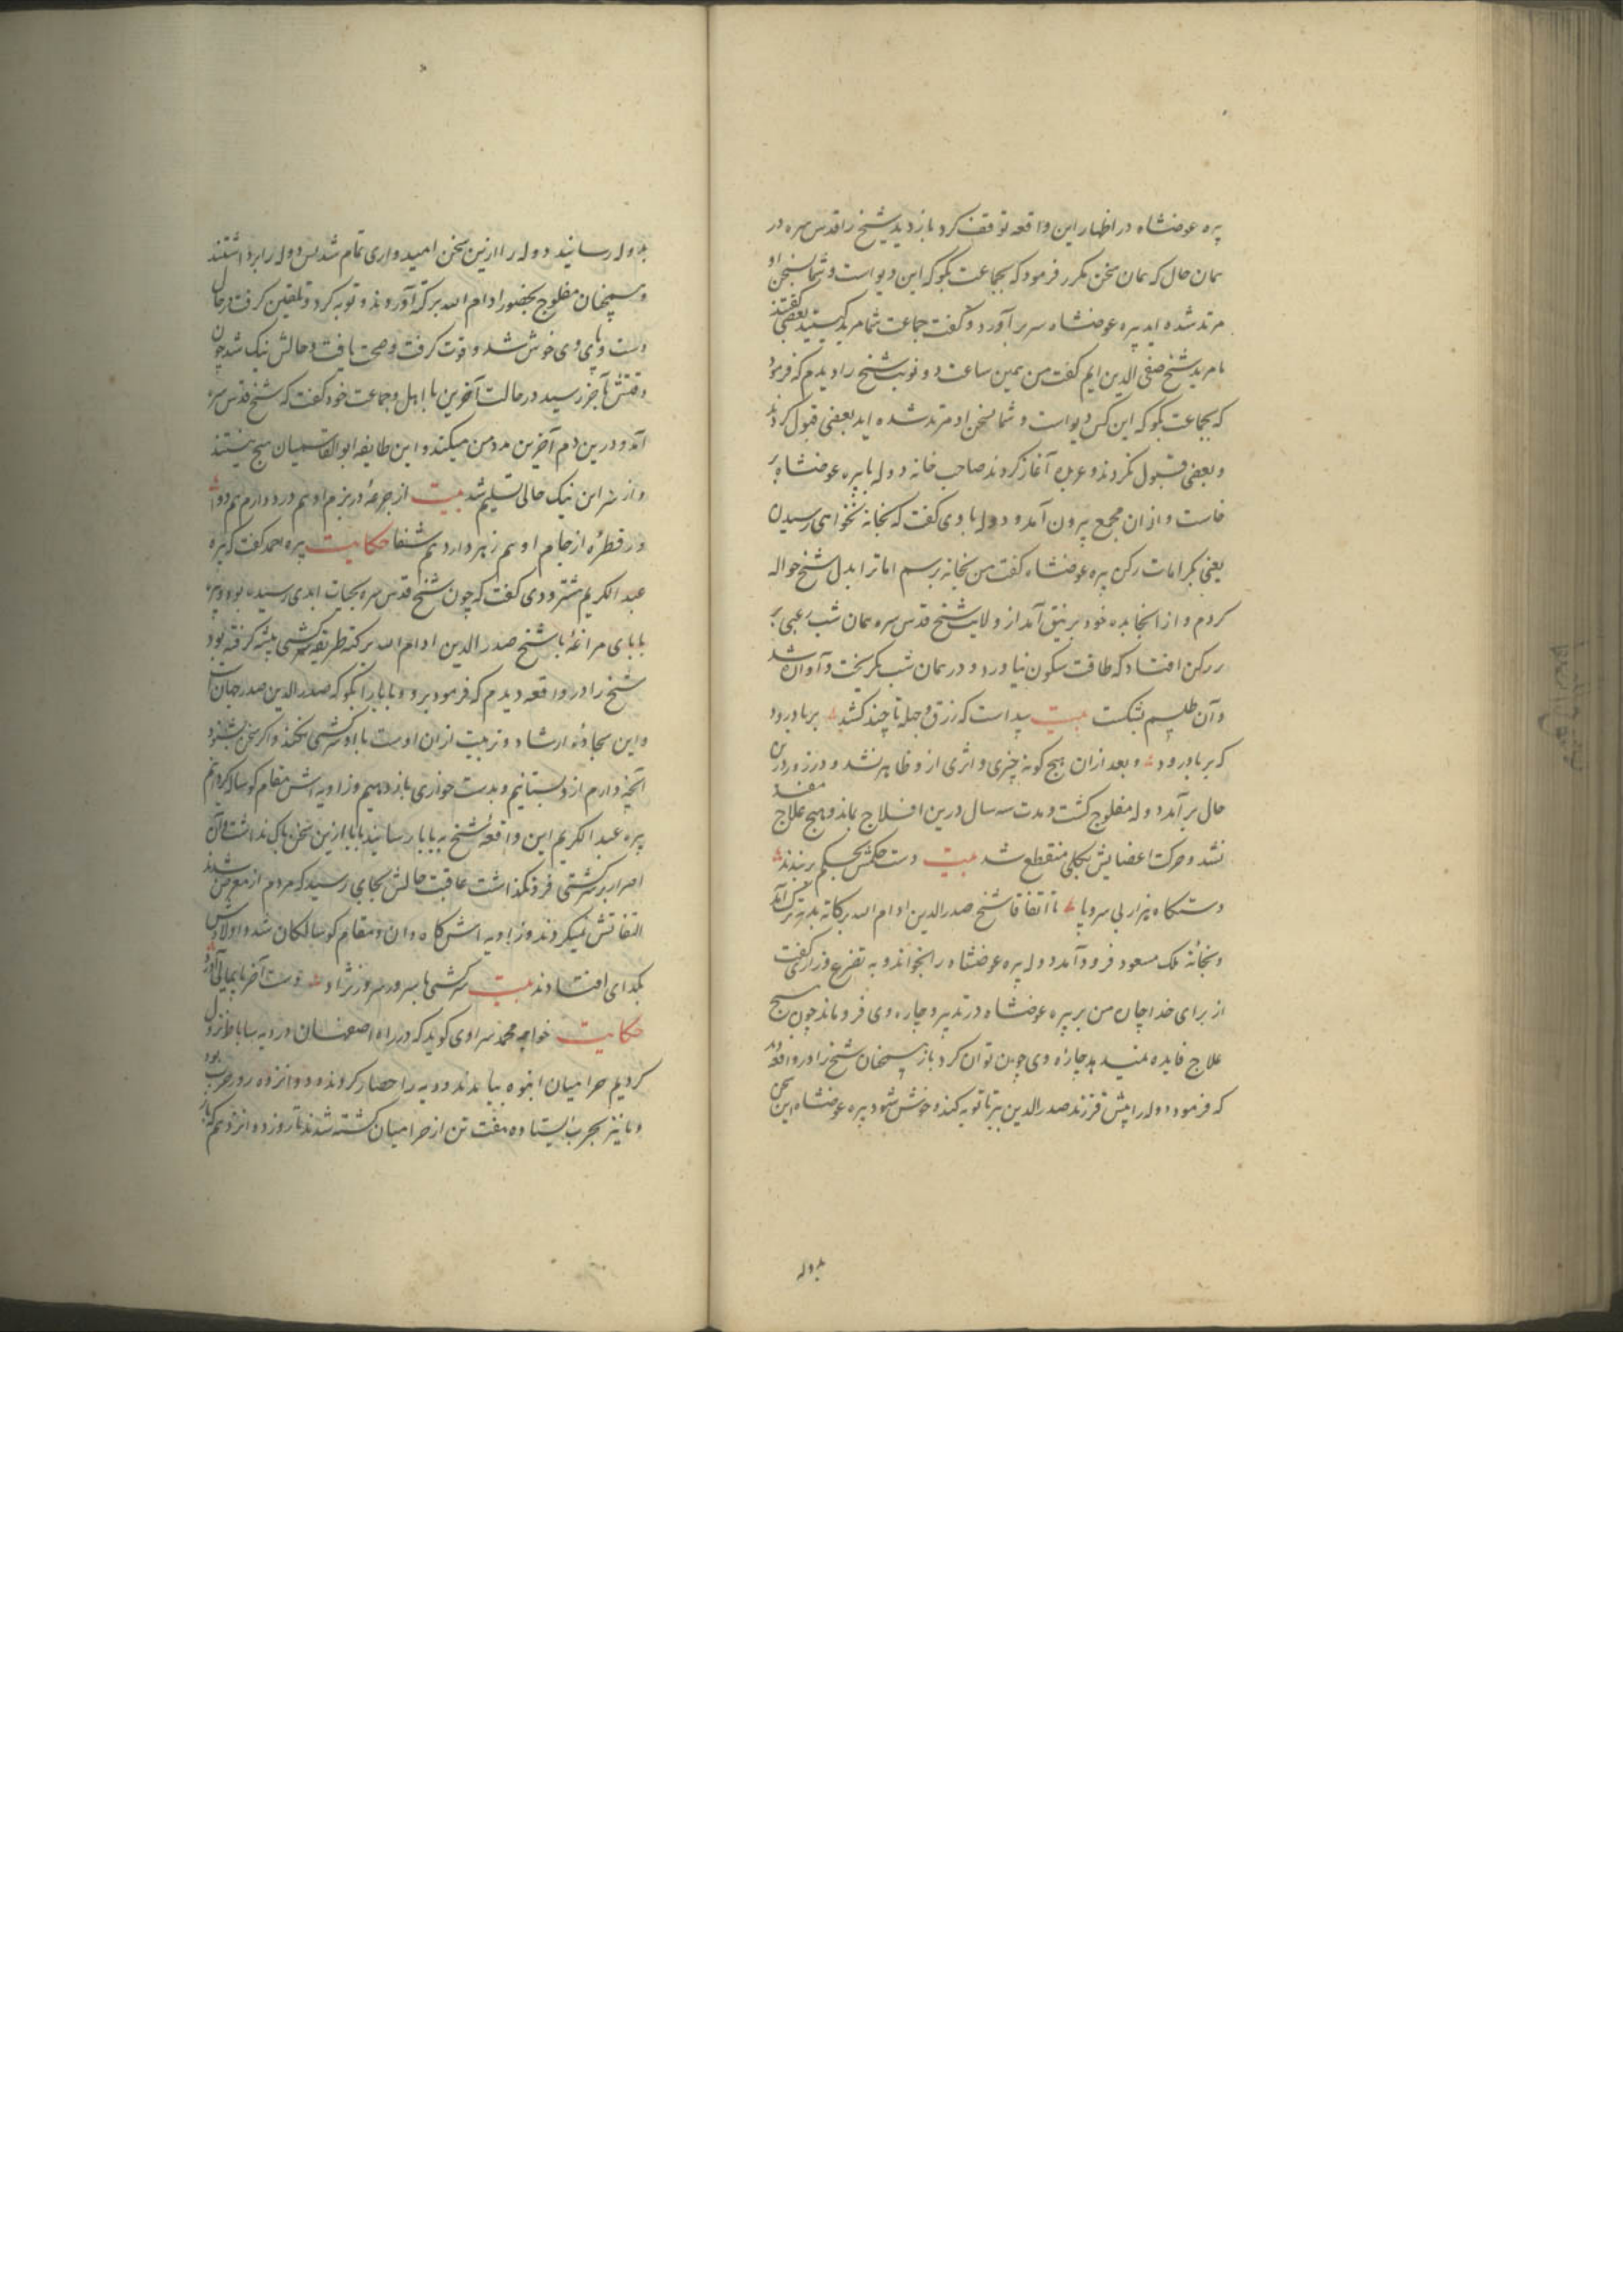 پیره عوضشاه در اظهار این واقعه توقف کرد باز دید شیخ را قدس سره در
همان حال که همان سخن مکرر فرمود که بجماعت بگو که این دیو است و شما بسخن او
مرتد شده اید پیره عوضشاه سر برآورد و گفت جماعت شما مرید کیستید بعضی گفتند
ما مرید شیخ صفی الدین ایم گفت من همین ساعت دو نوبت شیخ را دیدم که فرمود
که بجماعت بگو که این کس دیو است و شما بسخن او مرتد شده اید بعضی قبول کردند
و بعضی قبول نکردند و عربده آغاز کردند صاحب خانه دوله با پیره عوضشاه بر
خاست و ازان مجمع بیرون آمد و دوله با وی گفت که بخانه نخواهی رسیدن
یعنی بکرامات رکن پیره عوضشاه گفت من بخانه برسم اما ترا بدل شیخ حواله
کردم و از آنجا بده خود بر نیق آمد از ولایت شیخ قدس سره همان شب رعبی بر
بر رکن افتاد که طاقت سکون نیاورد و در همان شب بگریخت و آواره شد
و آن طلسم بشکست بیت پیداست که زرق و حیله تا چند کشد بر باد رود
که بر باد رود و بعد ازان هیچ گونه چیزی و اثری از و ظاهر نشد و درزورد درین
حال برآمد دوله مفلوج گشت و مدت سه سال درین افلاج بماند و هیچ علاج مفید
نشد و حرکت اعضایش بکلی منقطع شد بیت دست حکمش بحکم بر بندند
دستگاه هزار بی سر و پا تا اتفاقا شیخ صدرالدین ادام الله برکاته بدیه آمد
و بخانه ملک مسعود فرود آمد دوله پیره عوضشاه را بخواند و به تضرع و زاری گفت
از برای خدا چان من بر پیره عوضشاه در تدبیر و چاره وی فرو ماند چون هیچ
علاج فایده نمیدید چاره وی چون توان کرد باز همچنان شیخ را در واقعه دید
که فرمود دوله را پیش فرزند صدرالدین ببر تا توبه کند و خوش شود پیره عوضشاه این سخن
بدوله
بدوله رسانید دوله را ازین سخن امیدواری تمام شد پس دوله را برداشتند
و همچنان مفلوج بحضور ادام الله برکته آوردند و توبه کرد و تلقین گرفت در حال
دست و پای وی خوش شد و قوت گرفت و صحت یافت و حالش نیک شد چون
وقتش بآخر رسید در حالت آخرین با اهل و جماعت خود گفت که شیخ قدس سره
آمد و درین دم آخرین مدد من میکند و این طایفه ابوالقاسمیان هیچ نیستند
و از سر این نیک حالی تسلیم شد بیت از جرعهٔ در بزم او هم درد دارم هم دوا
در قطرهٔ از جام او هم زهر دارد هم شفا حکایت پیره احمد گفت که پیره
عبد الکریم شترودی گفت که چون شیخ قدس سره بحیات ابدی رسیده بود و پیره
بابای مراغهٔ با شیخ صدرالدین ادام الله برکته طریقه سرکشی پیشه گرفته بود
شیخ را در واقعه دیدم که فرمود برو و بابا را بگو که صدرالدین صدر جهان است
و این سجادهٔ ارشاد و تربیت ازان اوست با او سرکشی نکند و اگر سخن نشنود
آنچه دارم از و بستانیم و بدست خواری بازدهیم و زاویه اش مقام گوساله گردانم
پیره عبد الکریم این واقعه شیخ به بابا رسانید بابا ازین سخن باک نداشت و آن
اصرار بر سرکشی فرو نگذاشت عاقبت حالش بجایی رسید که مردم از معرض شدند
التفاتش نمیکردند و زاویه اش کاه دان و مقام گوسالگان شد و اولادش
بگدای افتادند بیت سرکشی ها بسرور سر و زنژاد دست آخر بپایمالی آورد
حکایت خواجه محمد سراوی گوید که در راه اصفهان در دیه ساباط نزول
کردیم حرامیان انبوه بیامدند و دیه را حصار کردند و دوانزده روز حرب بود
و ما نیز بحرب ایستاده هفت تن از حرامیان کشته شدند تا روز دوانزدهم که باز